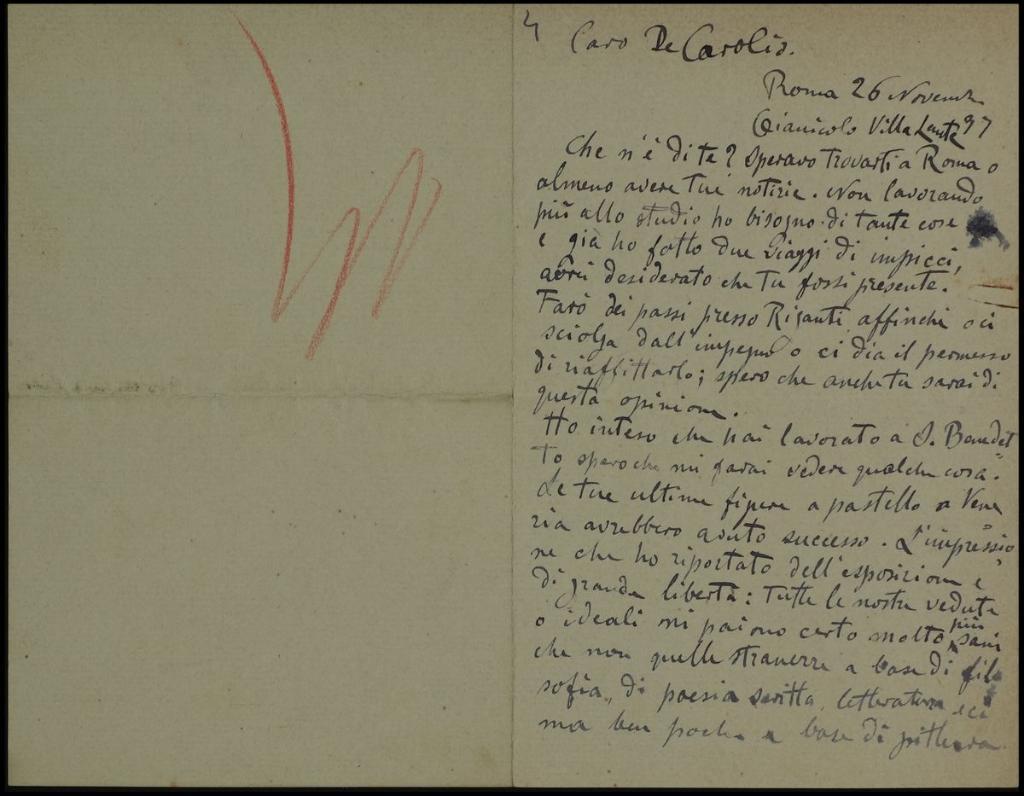 Caro De Carolis.
Roma 26 Novemb
Gianicolo Villa Lante 97
Che n'è di te? Speravo trovarti a Roma o
almeno avere tue notizie. Non lavorando
più allo studio ho bisogno di tante cose
e già ho fatto due viaggi di impicci,
avrei desiderato che tu fossi presente.
Farò dei passi presso Riganti affinchè o ci
sciolga dall'impegno o ci dia il permesso
di riaffittarlo; spero che anche tu sarai di
questa opinione.
Ho inteso che hai lavorato a S. Benedet
to spero che mi farai vedere qualche cosa.
Le tue ultime figure a pastello a Vene
zia avrebbero avuto successo. L'impressio
ne che ho riportato dell'esposizione è
di grande libertà: tutte le nostre vedute
o ideali mi paiono certo molto più sani
che non quelle straniere a base di filo
sofia, di poesia scritta, letteratura ecc
ma ben poche a base di pittura.